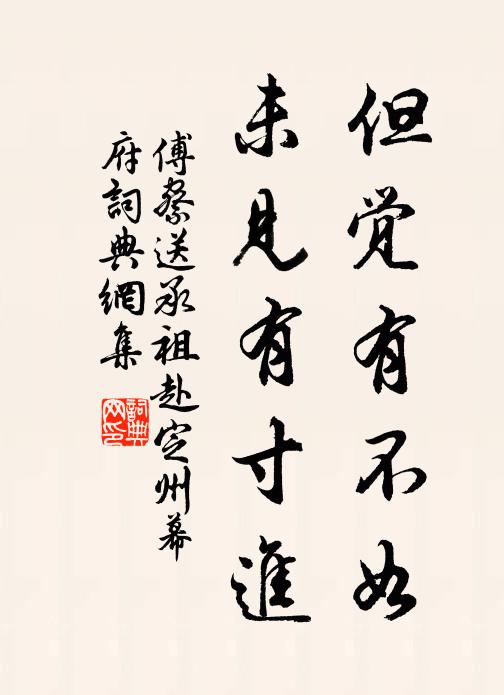 但觉有不如
未见有寸進
傅察送承祖赴定州幕
府詞典網集
詞典網印